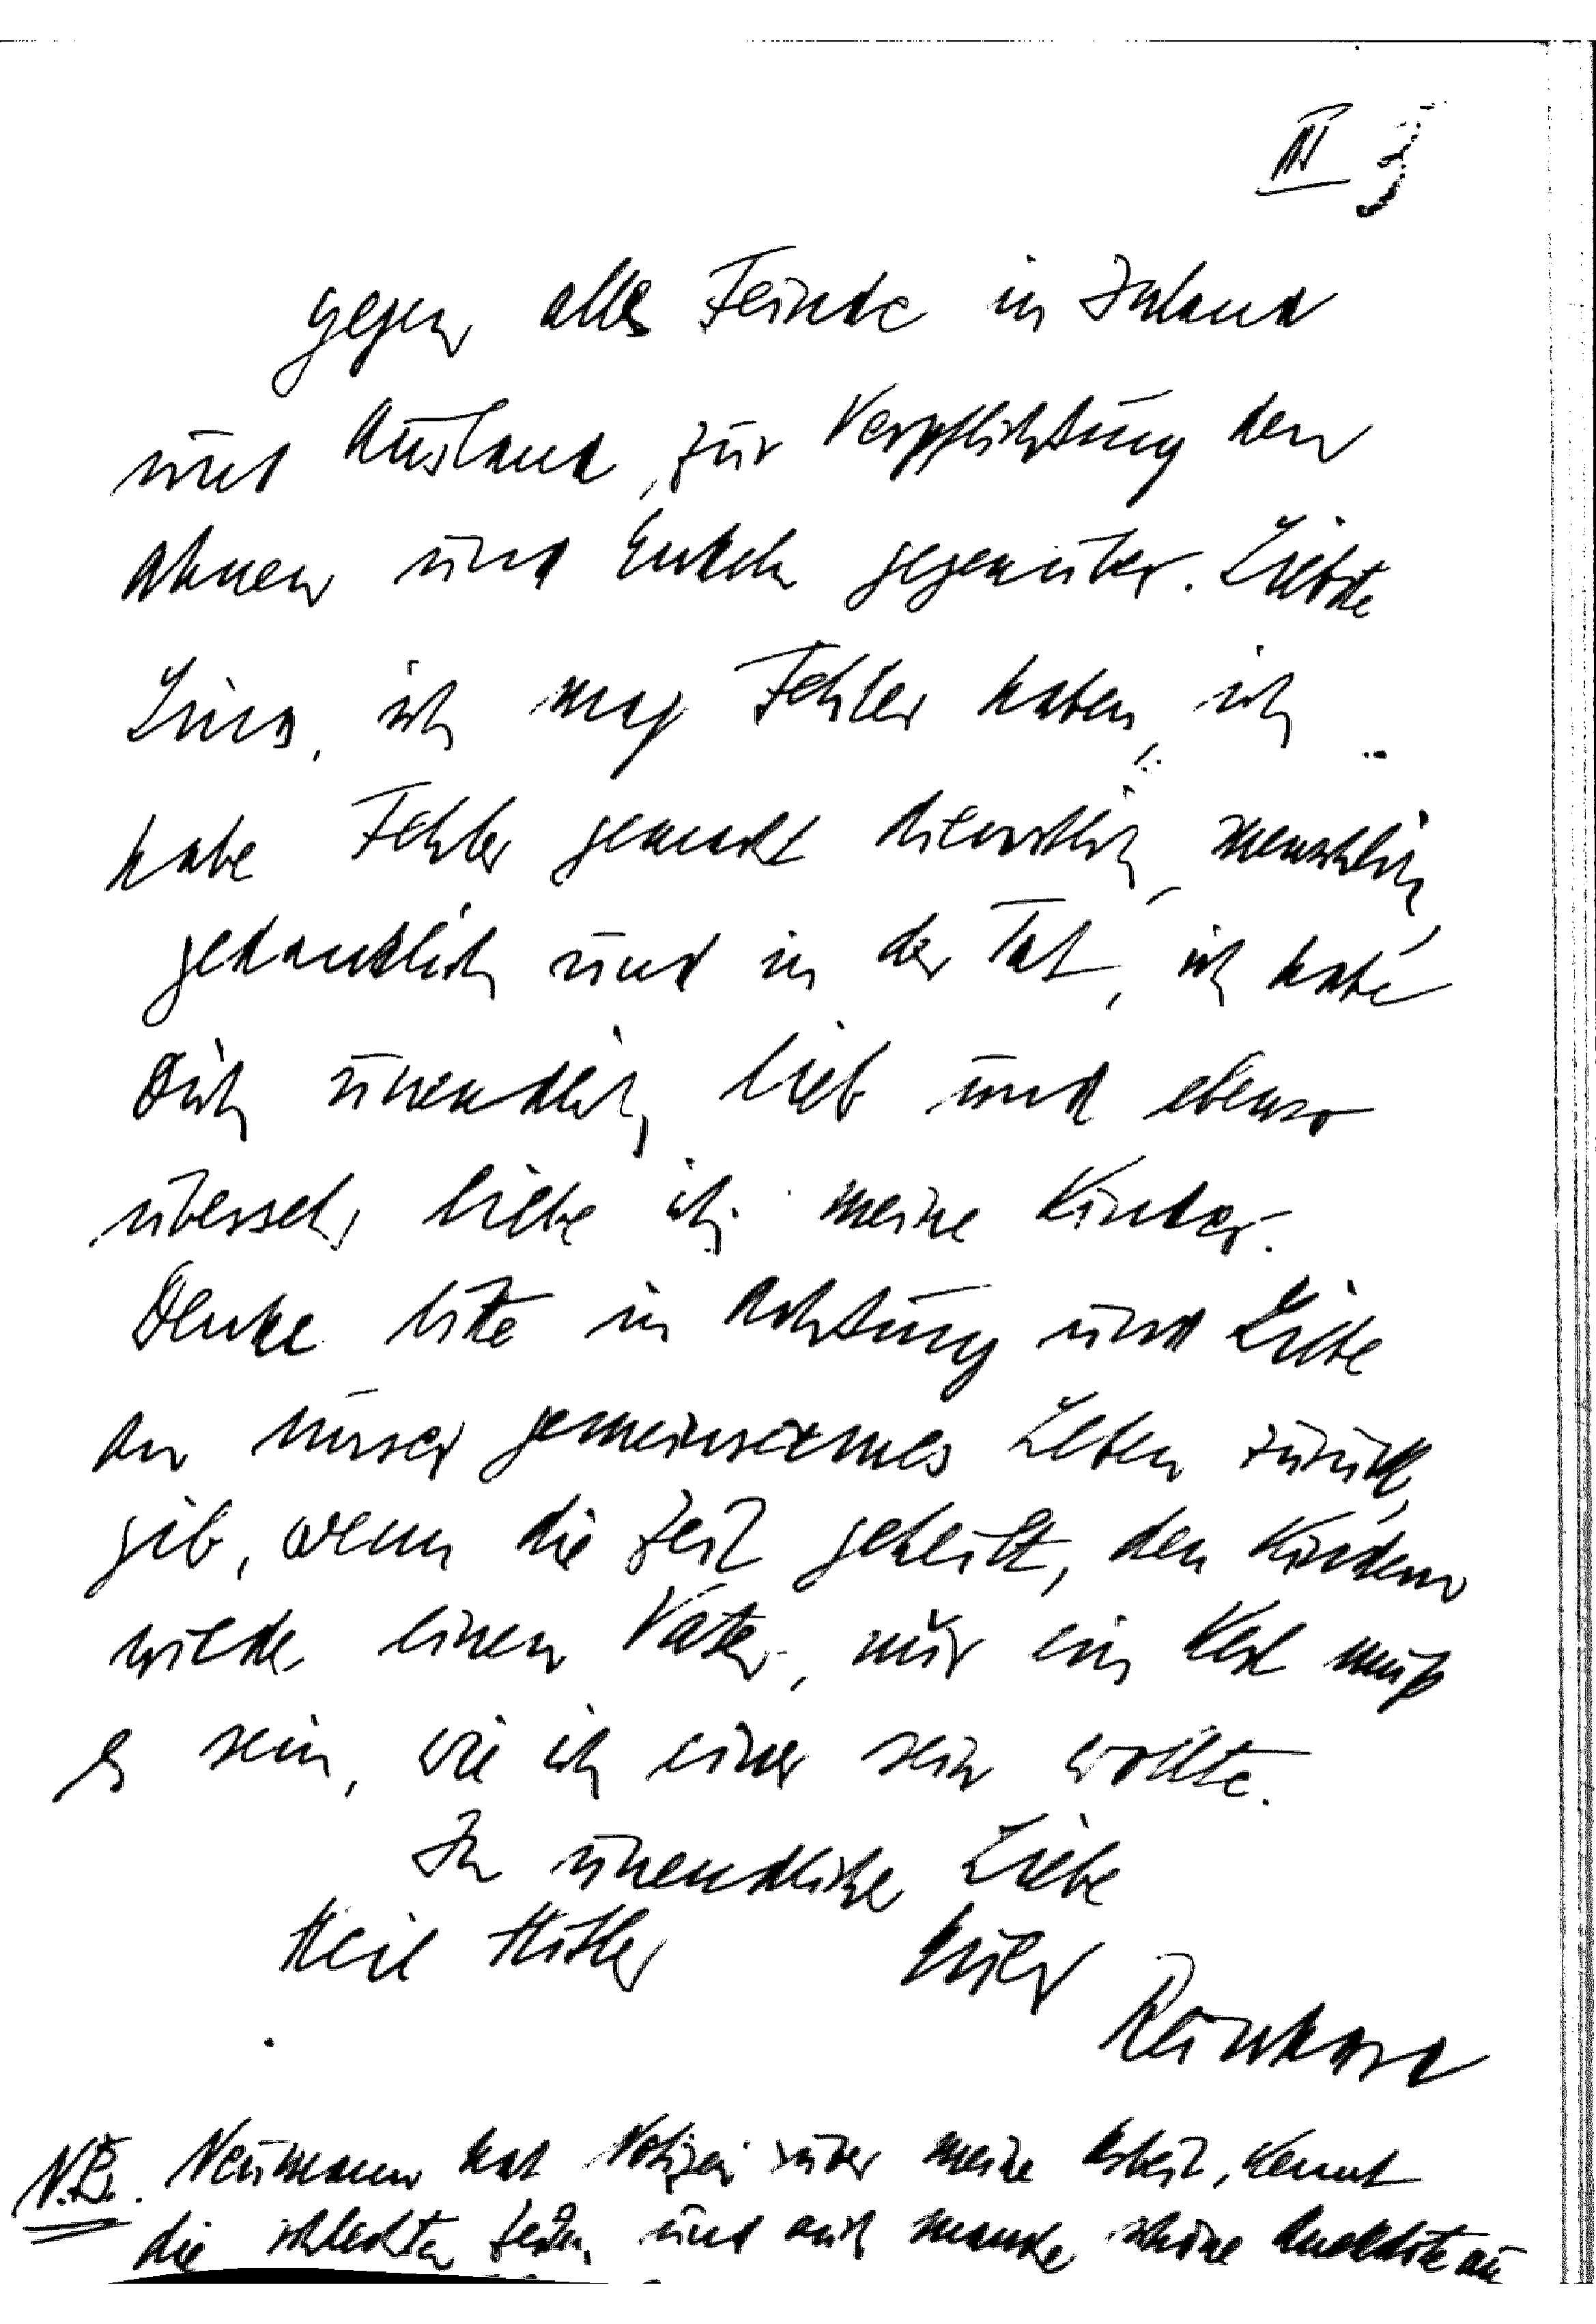 III
gegen alle Feinde in Inland
und Ausland, zur Verpflichtung den
Ahnen und Enkeln gegenüber. Liebste
Lina, ich mag Fehler haben, ich
habe Fehler gemacht dienstlich, menschlich,
gedanklich und in der Tat, ich habe
Dich unendlich lieb und ebenso
übersehr liebe ich meine Kinder.
Denke bitte in Achtung und Liebe
an unser gemeinsames Leben zurück,
gib, wenn die Zeit geheilt, den Kindern
wieder einen Vater, nur ein Kerl muß
es sein, wie ich einer sein wollte.
In unendlicher Liebe
Heil Hitler Euer
Reinhard
N.B. Neumann hat Notizen über meine Arbeit, kennt
die schlechten Zeiten und auch manche schöne Anekdote au